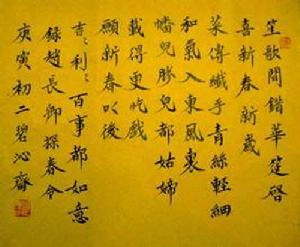 笙歌間錯華筵啓
喜新春新歲
菜傳纖手青絲輕細
和氣入東風裏
幡兒勝兒都姑媂
戴得更忔戲
願新春以後
吉〻利〻百事都如意
錄趙長卿探春令
庚寅初二碧沁齋